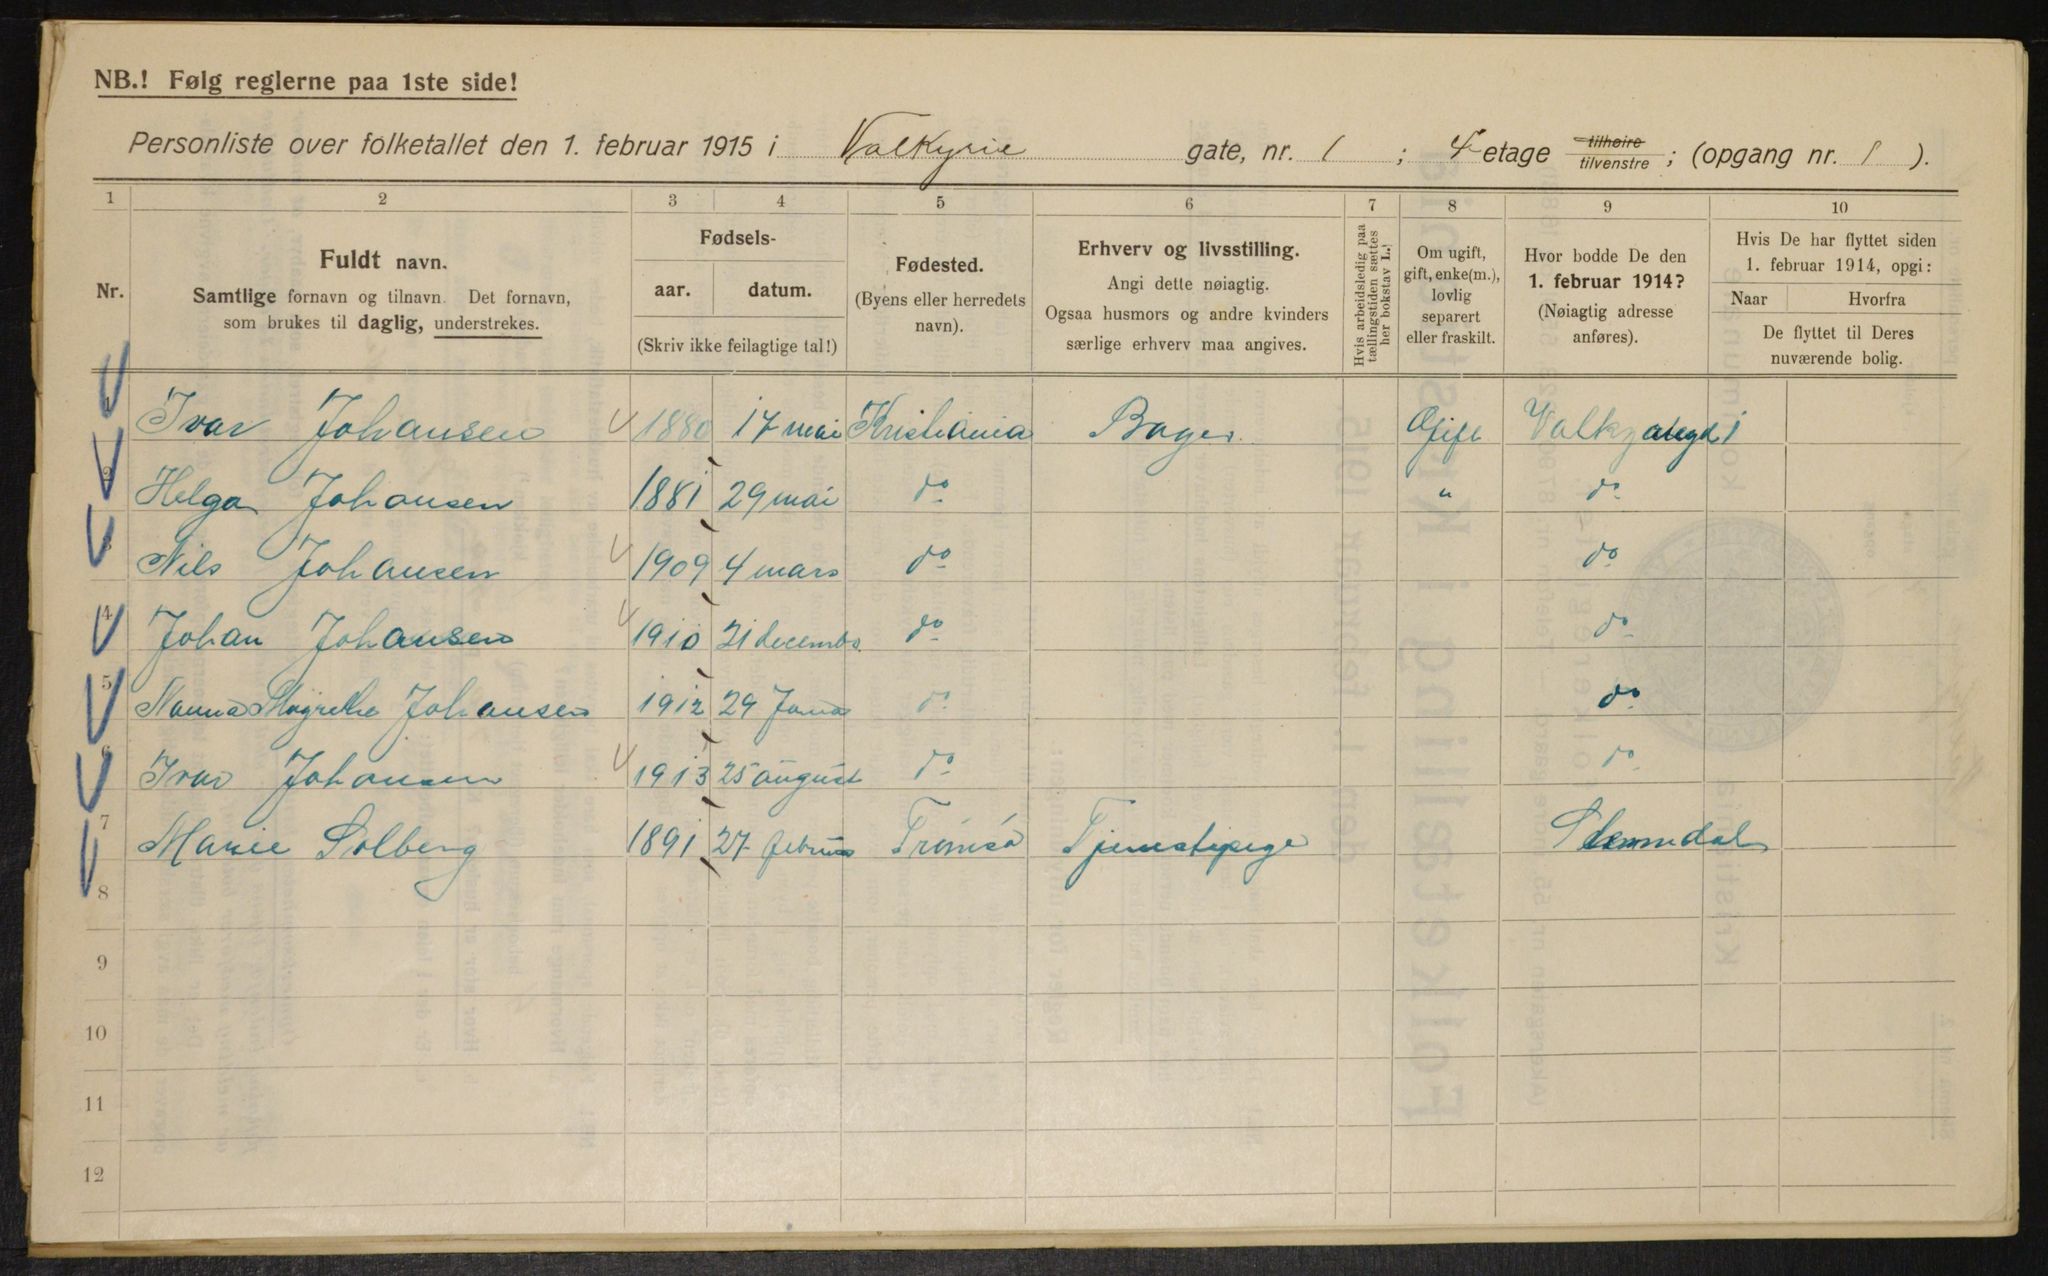 NB.! Følg reglerne paa 1ste side!
Personliste over folketallet den 1. februar 1915 i Valkyrie gate, nr. 1 ; 4 etage tilhøire tilvenstre ; (opgang nr. 1 ).
1 2 3 4 5 6 7 8 9 10
Nr.
Fuldt navn.
Samtlige fornavn og tilnavn. Det fornavn,
som brukes til daglig, understrekes.
Fødsels-
aar. datum.
(Skriv ikke feilagtige tal!)
Fødested.
(Byens eller herredets
navn).
Erhverv og livsstilling.
Angi dette nøiagtig.
Ogsaa husmors og andre kvinders
særlige erhverv maa angives.
Hvis arbeidsledig paa
tællingstiden sættes
her bokstav L.!
Om ugift,
gift, enke(m.),
lovlig
separert
eller fraskilt.
Hvor bodde De den
1. februar 1914?
(Nøiagtig adresse
anføres).
Hvis De har flyttet siden
1. februar 1914, opgi:
Naar Hvorfra
De flyttet til Deres
nuværende bolig.
Ivar Johansen 1880 17 mai Kristiania Bager Gift 1
2 Helga Johansen 1881 29 mai do " do
3 Nils Johansen 1909 4 mars do do
4 Johan Johansen 1910 21 decembr. do do
5 Nanna Johansen 1912 29 do do
6 Ivar Johansen 1913 25 august do do
7 Marie Solberg 1891 27 Tromsø Tjenestepige
8
9
10
11
12